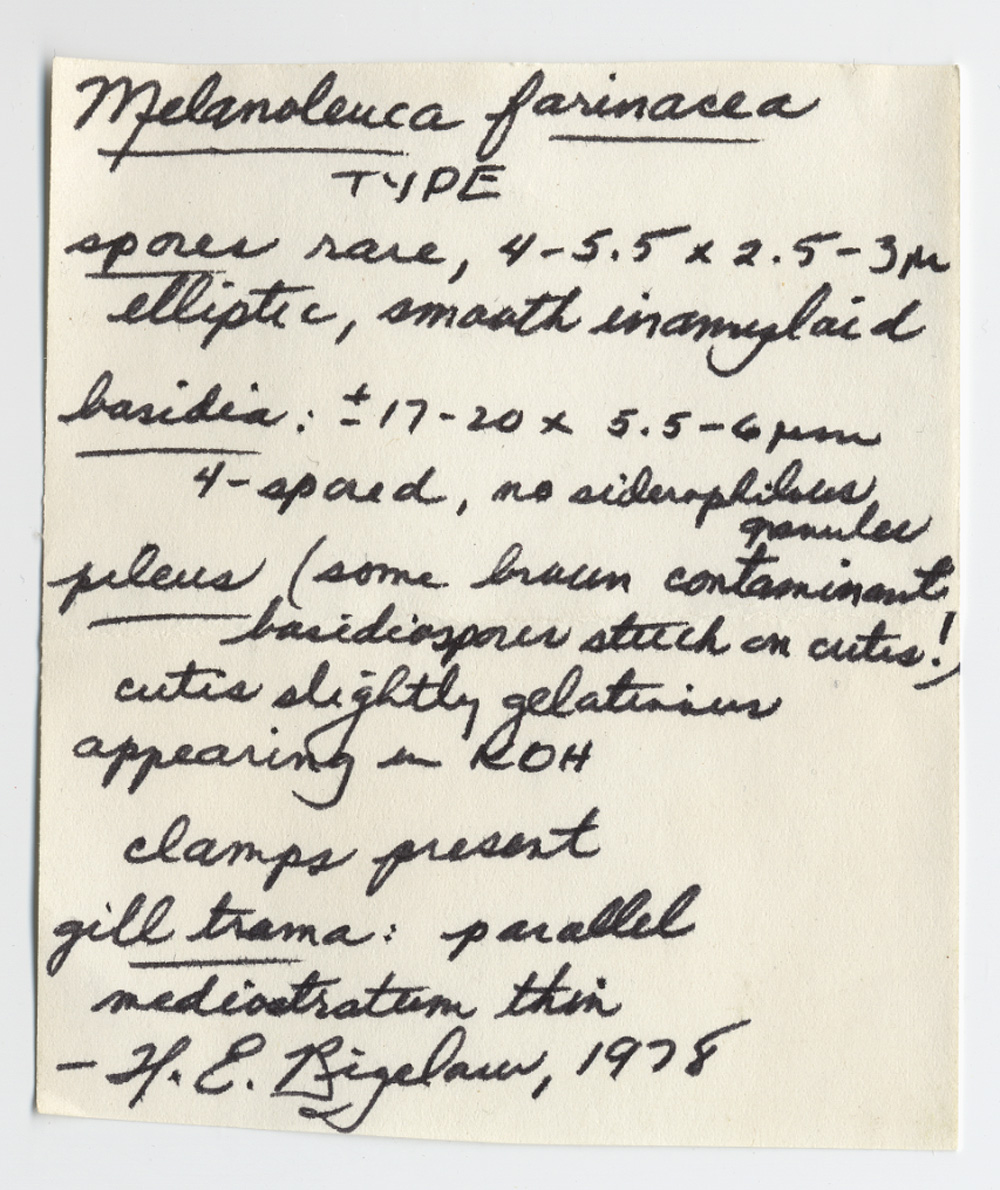 Melanoleuca farinacea
TYPE
spores rare, 4-5.5 x 2.5-3µ
elliptic, smooth inamyloid
basidia: ±17-20 x 5.5-6 µm
4-spored, no siderophilous
granules
pileus (some brown contaminant
basidiospores stuck on cutis!)
cutis slightly gelatinous
appearing in KOH
clamps present
gill trama: parallel
mediostratum thin
- H. E. Bigelow, 1978